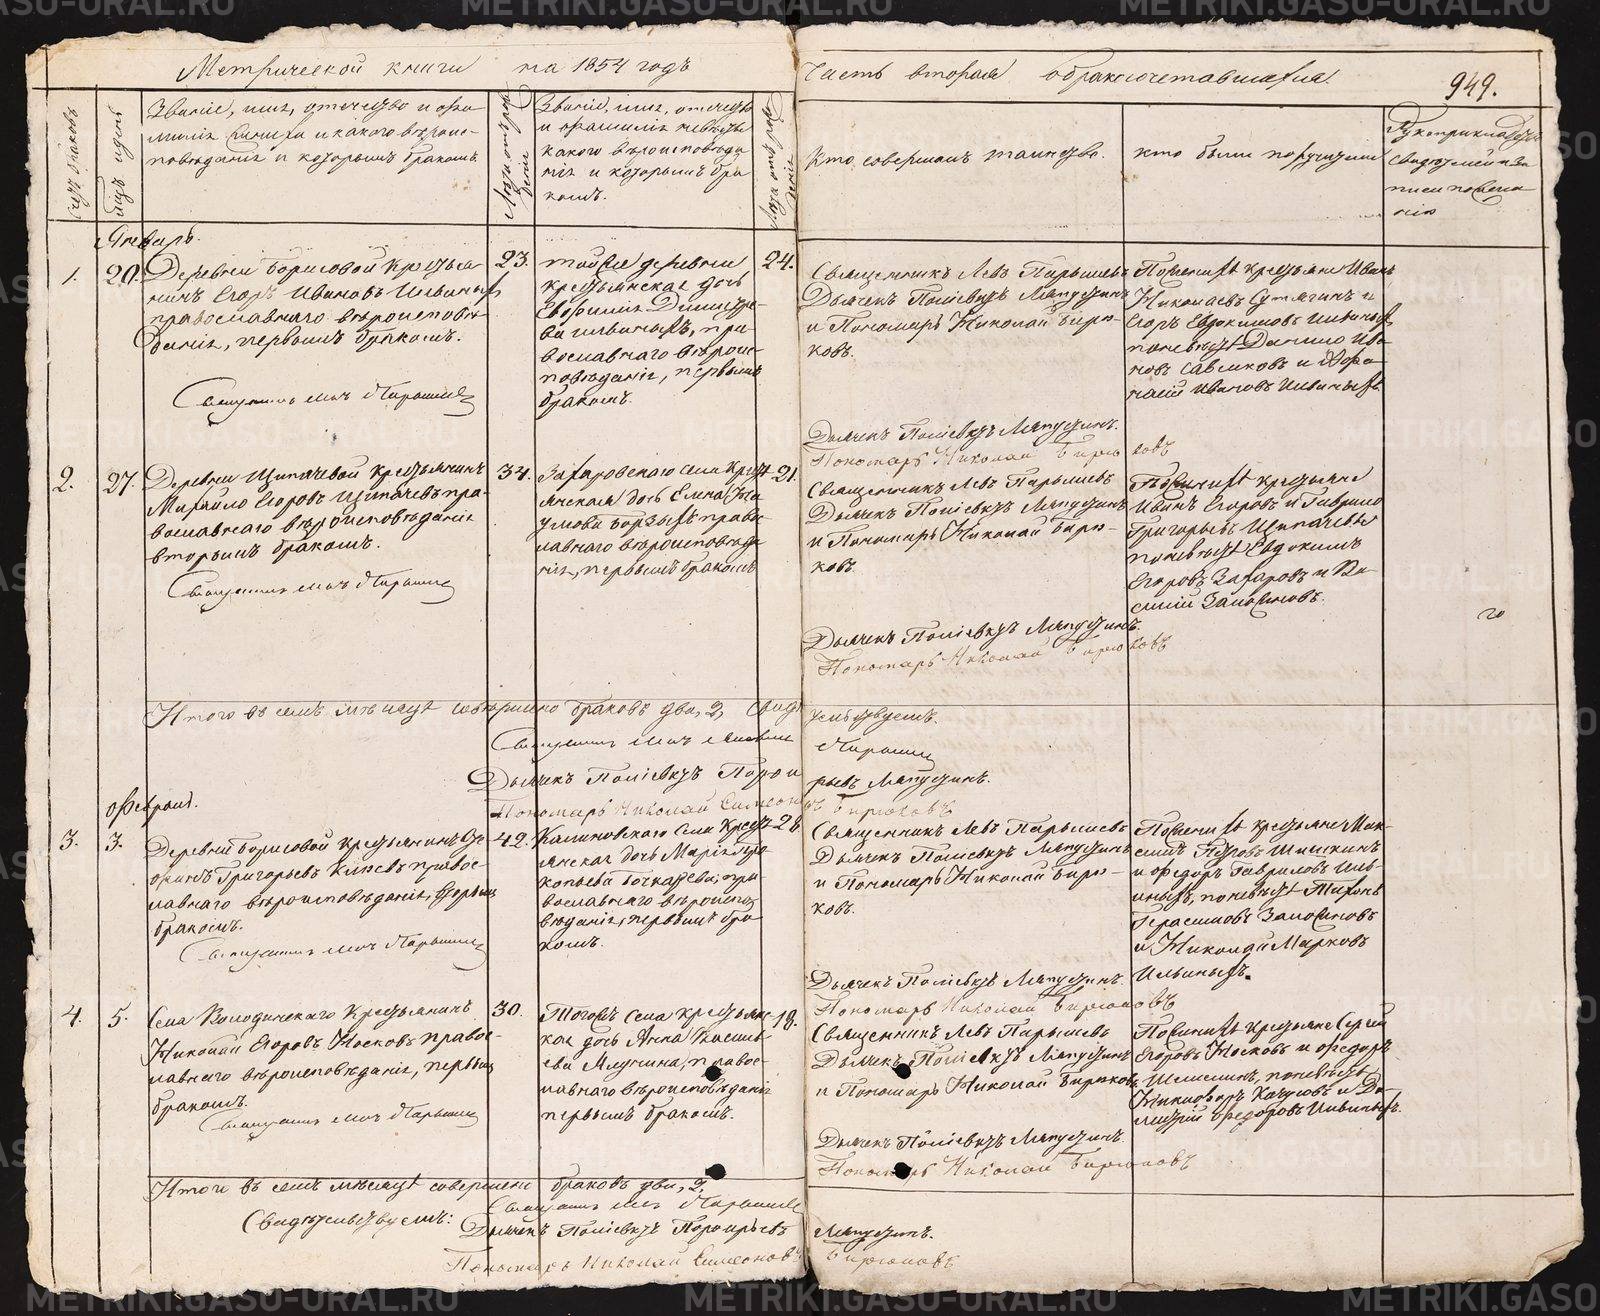 Метрической книги на 1854 годъ
Часть вторая о бракосочетавшихся
949.
Счетъ браковъ
Мѣсяцъ и день
Званіе, имя, отечество и фа-
милія жениха и какого вѣроис-
повѣданія и которымъ бракомъ.
Лѣта жениха
Званіе, имя, отечество
и фамилія невѣсты
какого вѣроисповѣда
нія и которымъ бра
комъ.
Лѣта невѣсты
Кто совершалъ таинство.
кто были поручители
Рукоприкладство
свидѣтелей за
писи по жела
нію
Январь.
1.
20.
Деревни Борисовой крестья
нинъ Егоръ Ивановъ Ильиныхъ
православнаго вѣроисповѣ
данія, первымъ бракомъ.
Священникъ Левъ Парышевъ
23.
тойже деревни
крестьянская дочь
Еворинія Димитріе
ва Ильиныхъ, пра
вославнаго вѣроис-
повѣданія, первымъ
бракомъ.
24.
Священникъ Левъ Парышевъ
Дьячекъ Поліевктъ Ляпустинъ
и Пономарь Николай Бирю-
ковъ.
Дьячекъ Поліевктъ Ляпустинъ.
Пономарь Николай Бирюковъ
По женихѣ крестьяне Иванъ
Николаевъ Сутягинъ и
Егоръ Евдокимовъ Ильиныхъ
по невѣстѣ Данило Ива
новъ Савенковъ и Афо
насій Ивановъ Ильиныхъ
2.
27.
Деревни Щипачевой крестьянинъ
Михайло Егоровъ Щипачевъ пра-
вославнаго вѣроисповѣданія
вторымъ бракомъ.
Священникъ Левъ Парышевъ
34.
Захаровскаго села крест
янская дочь Елена На
умова Борзыхъ право
славнаго вѣроисповѣда
нія, первымъ бракомъ
21.
Священникъ Левъ Парышевъ
Дьячекъ Поліевктъ Ляпустинъ
и Пономарь Николай Бирю-
ковъ.
Дьячекъ Поліевктъ Ляпустинъ.
Пономарь Николай Бирюковъ
По женихѣ крестьяне
Иванъ Егоровъ и Гаврило
Григорьевъ Щипачевы
по невѣстѣ Евдокимъ
Егоровъ Захаровъ и Ва-
силій Замотиновъ.
Итого въ семъ мѣсяцѣ совершено браковъ два, 2, Свидѣтельствуемъ.
Священникъ Левъ Парышевъ
Дьячекъ Поліевктъ Порфирьевъ Ляпустинъ.
Пономарь Николай Симеоновъ Бирюковъ
Февраль.
3.
3.
Деревни Борисовой крестьянинъ Ѳе
Григорьевъ правос-
лавнаго вѣроисповѣданія, вторымъ
бракомъ.
Священникъ Левъ Парышевъ
42.
Калиновскаго села крест
янская дочь Марія Про
копьева Бочкарева, пра
вославнаго вѣроиспо
вѣданія, первымъ бра
комъ.
28
Священникъ Левъ Парышевъ
Дьячекъ Поліевктъ Ляпустинъ
и Пономарь Николай Бирю-
ковъ.
Дьячекъ Поліевктъ Ляпустинъ.
Пономарь Николай Бирюковъ
По женихѣ крестьяне Мак-
симъ Петровъ Шишкинъ
и Ѳедоръ Гавриловъ Иль-
иныхъ, по невѣстѣ Тихонъ
Герасимовъ Замотиновъ
и Марковъ
Ильиныхъ.
4.
5.
Села Володинскаго крестьянинъ
Николай Егоровъ Носковъ правос-
лавнаго вѣроисповѣданія, первымъ
бракомъ.
Священникъ Левъ Парышевъ
30.
Тогожъ села крестьянс-
кая дочь Анна Василь-
ева правос-
лавнаго вѣроисповѣданія
первымъ бракомъ.
18.
Священникъ Левъ Парышевъ
Дьячекъ Поліевктъ Ляпустинъ
и Пономарь Николай Бирюковъ
Дьячекъ Поліевктъ Ляпустинъ.
Пономарь Николай Бирюковъ
По женихѣ крестьяне Сергѣй
Егоровъ Носковъ и Ѳедоръ
по невѣстѣ
Никифоръ и Ди
митрій Ѳедоровъ Ильиныхъ.
Итого въ семъ мѣсяцѣ совершено браковъ два, 2.
Священникъ Левъ Парышевъ
Свидѣтельствуемъ:
Дьячекъ Поліевктъ Порфирьевъ Ляпустинъ.
Пономарь Николай Симеоновъ Бирюковъ
METRIKI.GASU-URAL.RU